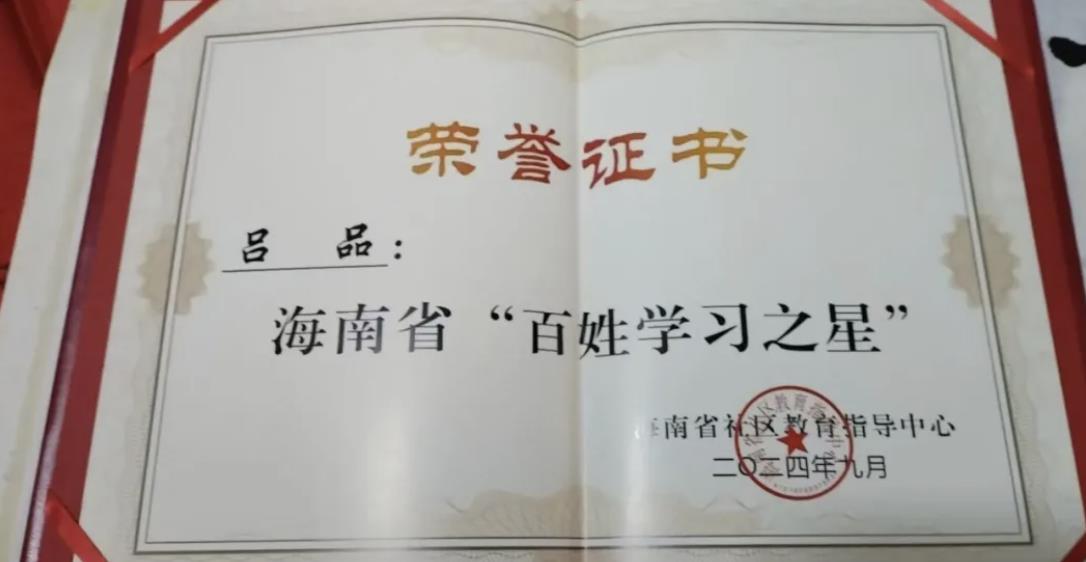 荣誉证书
吕 品：
海南省“百姓学习之星”
海南省社区教育指导中心
二〇二四年九月